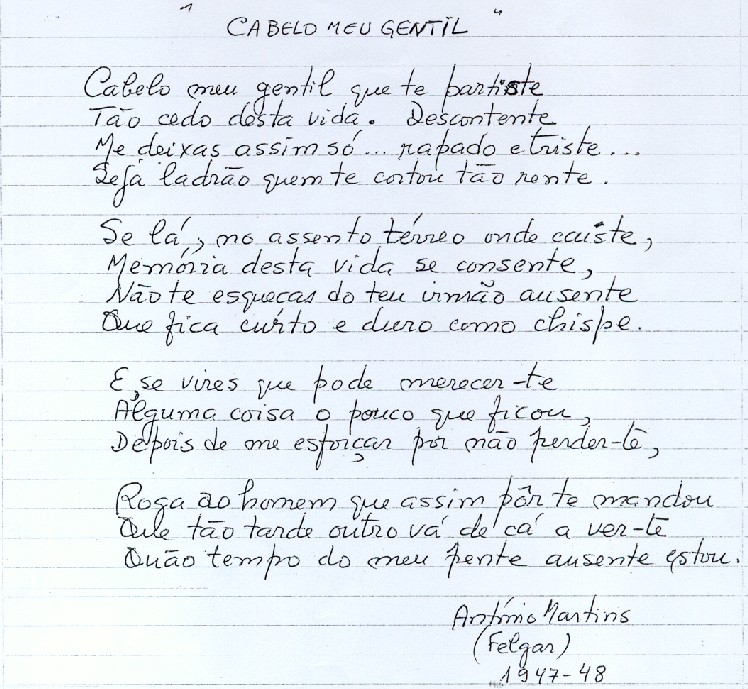 " CABELO MEU GENTIL "
Cabelo meu gentil que te partiste
Tão cedo desta vida. Descontente
Me deixas assim só... rapado e triste...
Seja ladrão quem te cortou tão rente.
Se lá, no assento térreo onde caíste,
Memória desta vida se consente,
Não te esqueças do teu irmão ausente
Que fica curto e duro como chispe.
E, se vires que pode merecer-te
Alguma coisa o pouco que ficou,
Depois de me esforçar por não perder-te,
Roga ao homem que assim pôr te mandou
Que tão tarde outro vá de cá a ver-te
Quão tempo do meu pente ausente estou.
António Martins
(Felgar)
1947-48